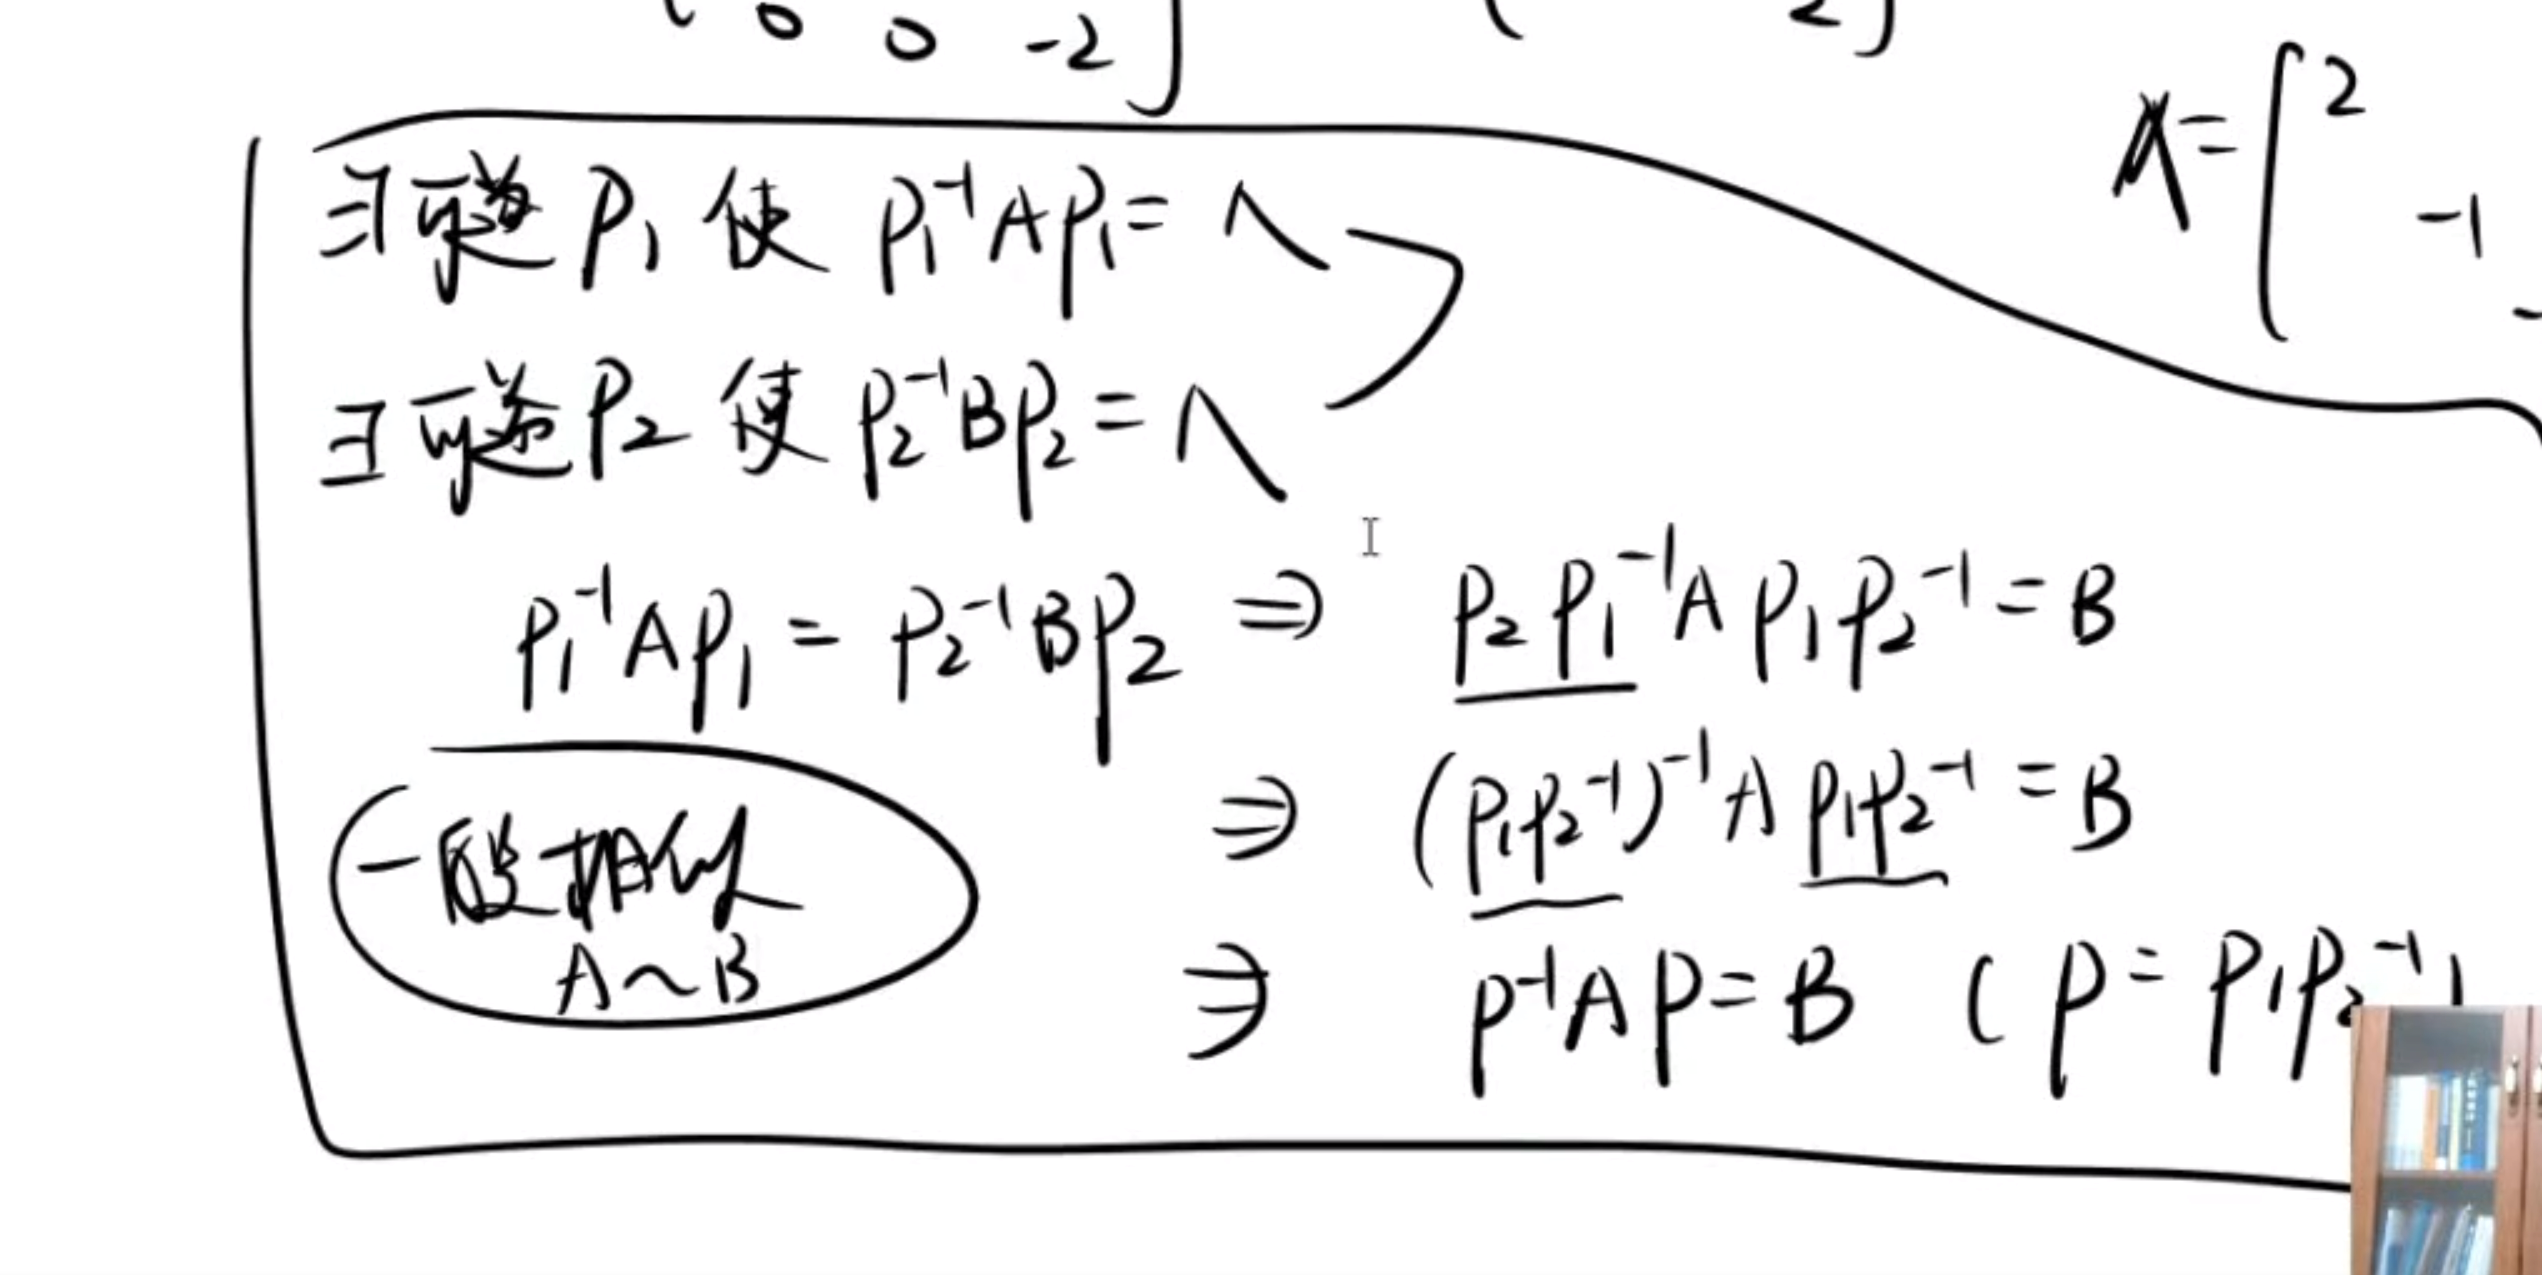 0 0 -2]
2]
A=[2
-1
∃可逆P₁使 P₁⁻¹AP₁=Λ
∃可逆P₂使 P₂⁻¹BP₂=Λ
P₁⁻¹AP₁=P₂⁻¹BP₂ ⇒ P₂P₁⁻¹AP₁P₂⁻¹=B
⇒ (P₁P₂⁻¹)⁻¹AP₁P₂⁻¹=B
一般相似
A~B
⇒ P⁻¹AP=B (P=P₁P₂⁻¹)